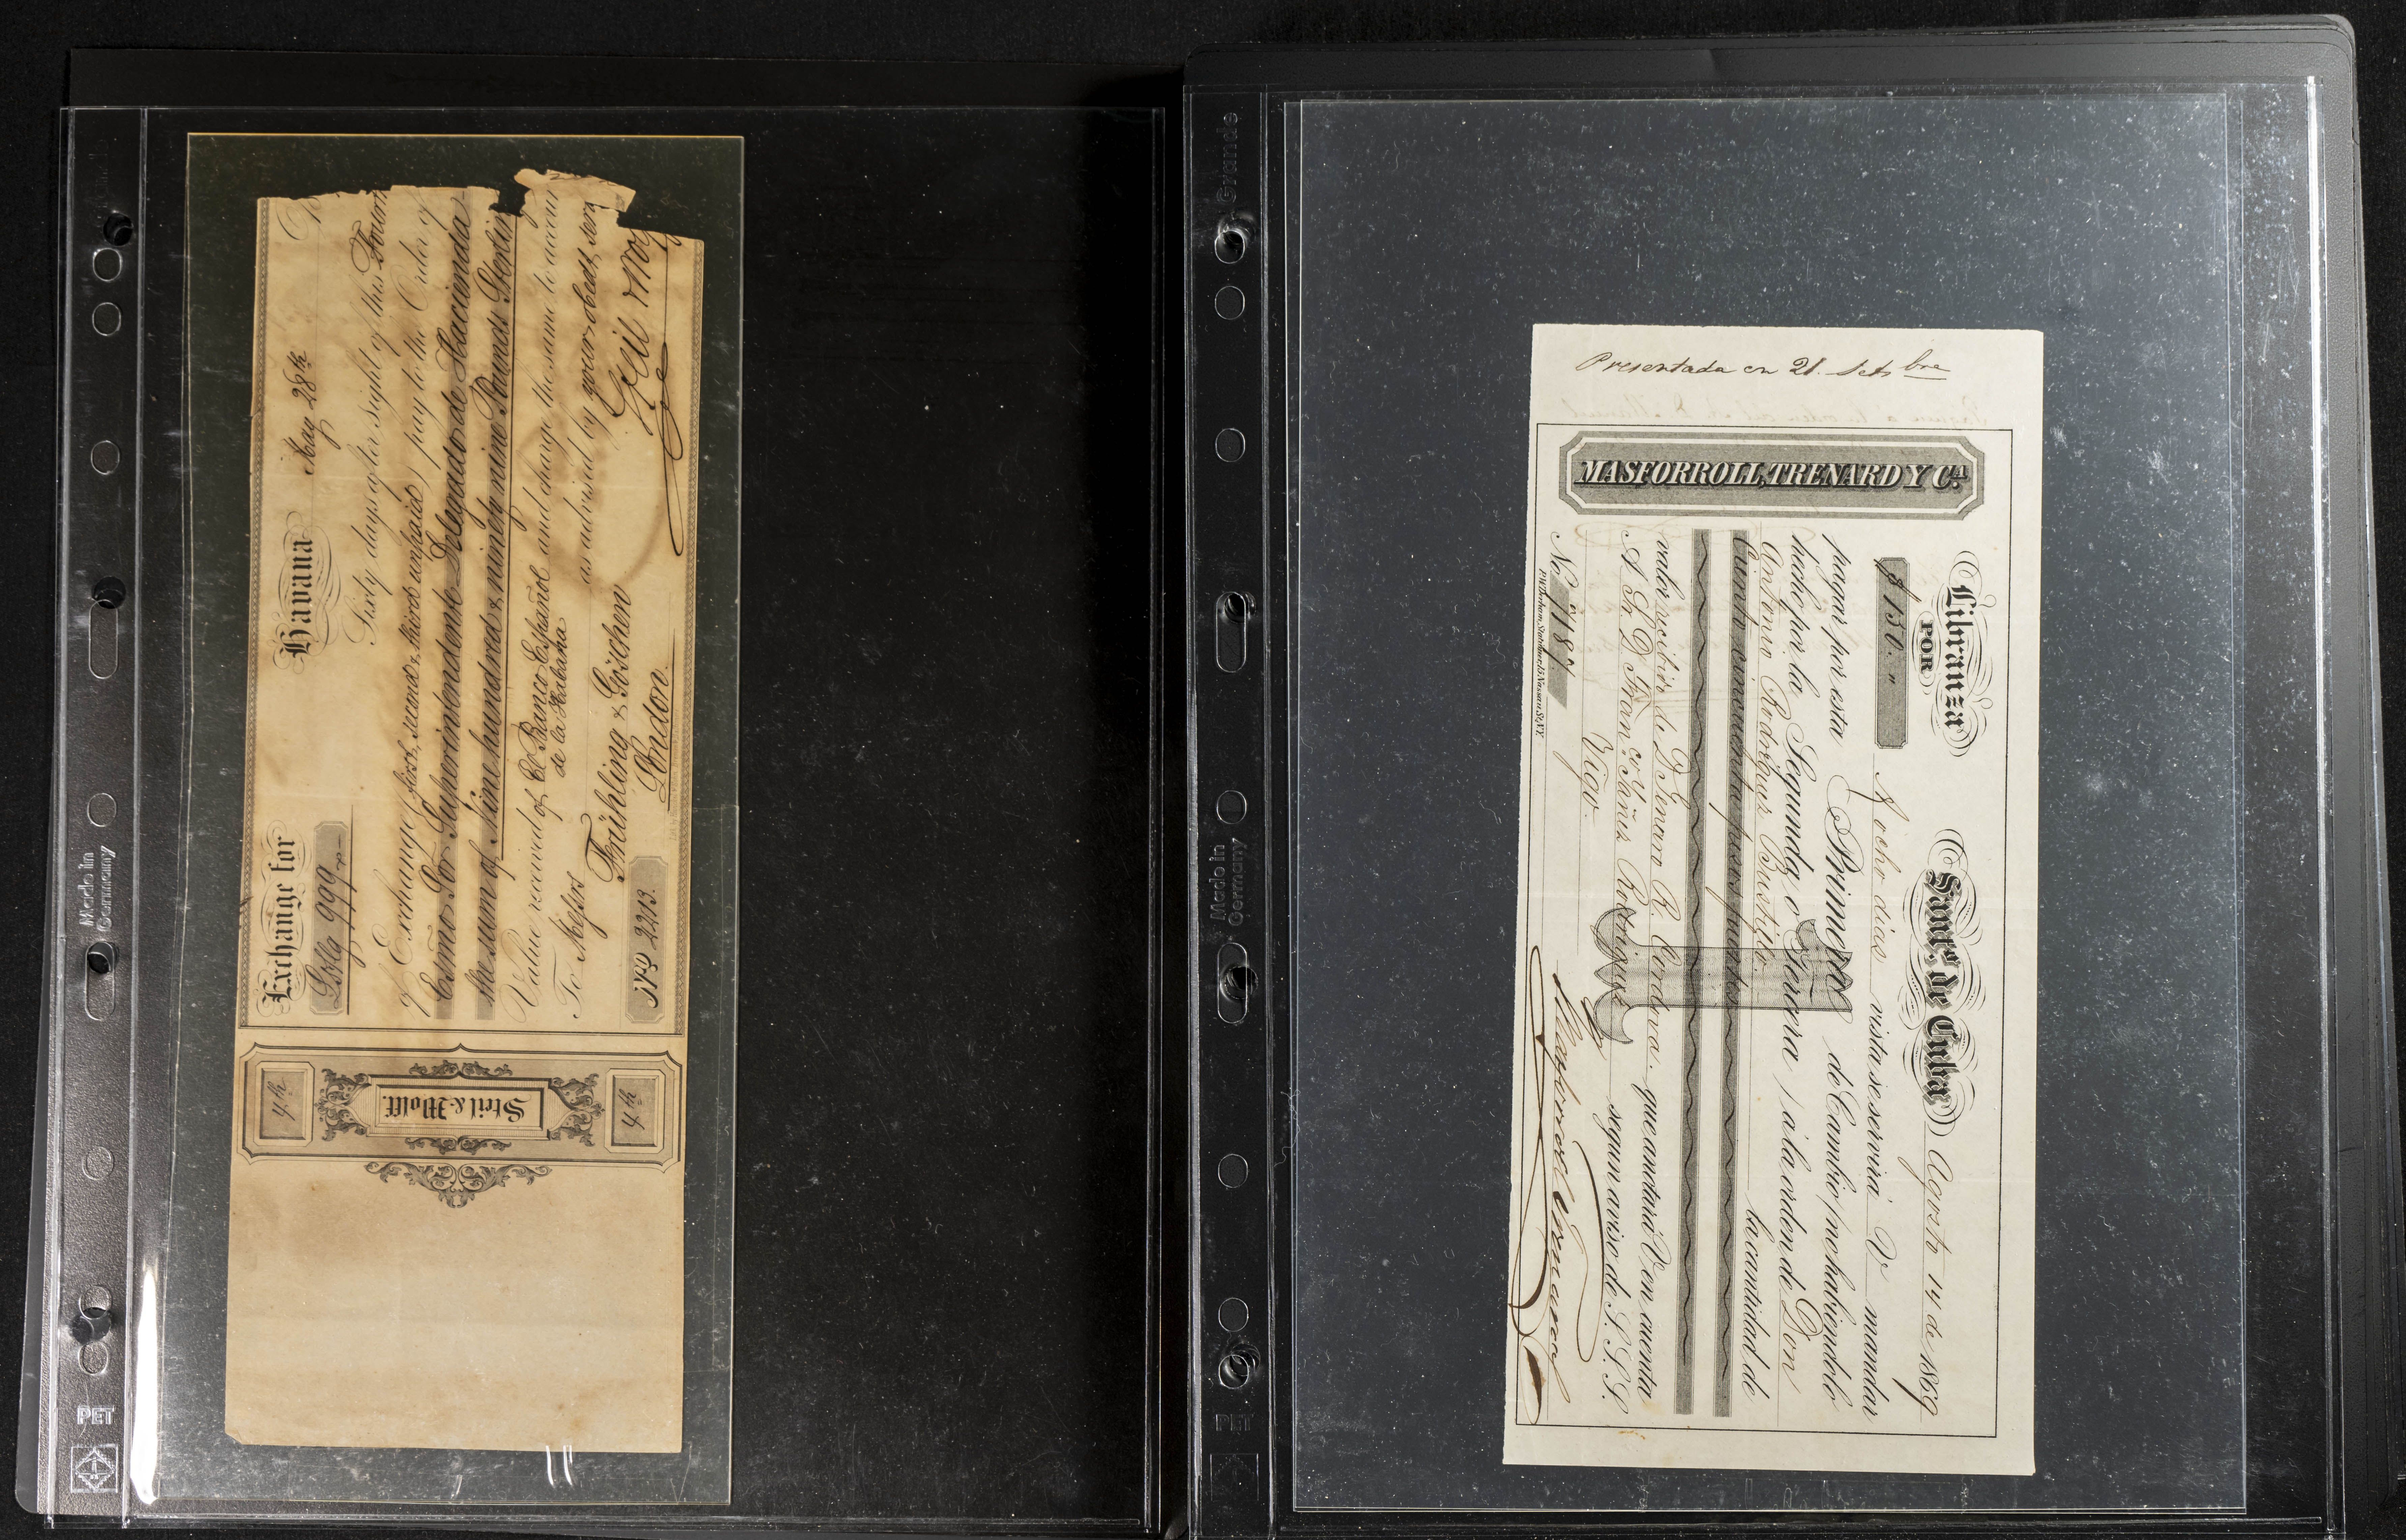 Exchange for Havana May 28th
Lstg 999 „ „ –
Sixty days after sight of this Fourth
of Exchange (first, second & third unpaid) pay to the Order of
Exmo. Sor. Superintendente Delegado de Hacienda
the sum of Nine hundred & ninety nine Pounds Sterling
Value received of El Banco Español and charge the same to account
de la Habana
as advised by your obedt. serv
To Messrs
Frühling & Göschen
London.
No 2213.
4th
Streil & Wolff.
4th
Made in
Germany
PET
Presentada en 21. Setbre
MASFORROLL, TRENARD Y CA.
Libranza
POR
$ 150. „
Santo. de Cuba Agosto 14 de 1869
A ocho dias vista se servirá V mandar
pagar por esta Primera de Cambio (no habiendolo
hecho por la Segunda o Tercera) a la orden de Don
Antonio Rodriguez Bustelo. la cantidad de
Ciento cincuenta pesos fuertes
valor recibido de D. Genaro R. Cordova. que anotará V. en cuenta
A Sr. D. Franco. Yañez Rodriguez segun aviso de S.S.S.
Vigo.
No. 7187
Grande
Made in
Germany
PET